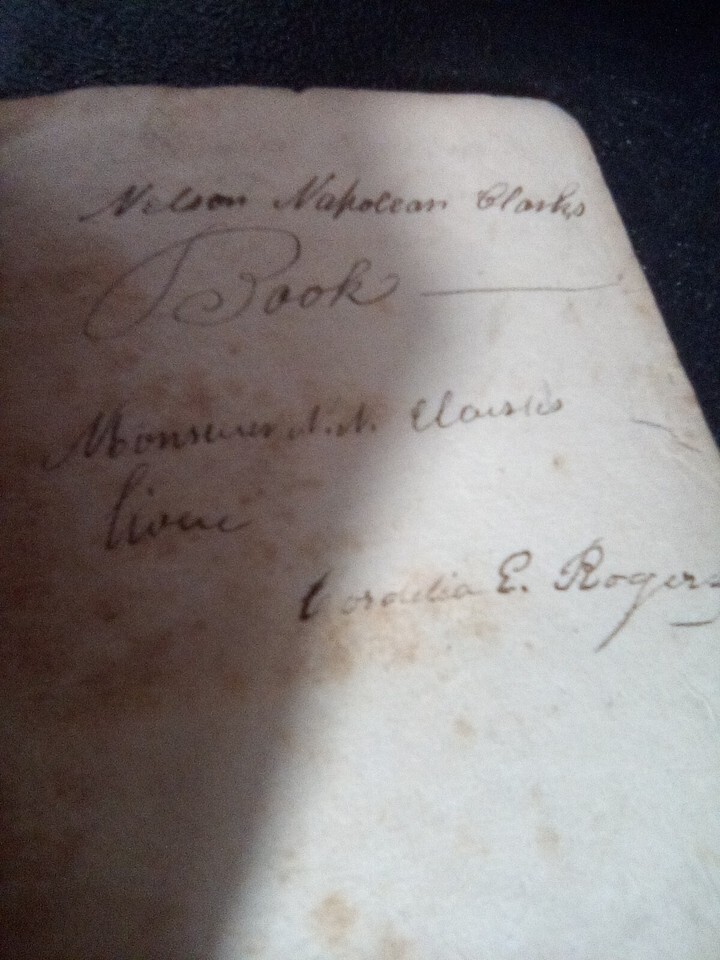 Nelson Napolean Clarks
Book
Monsieur N. N. Clarks
livre
Cordelia E. Rogers